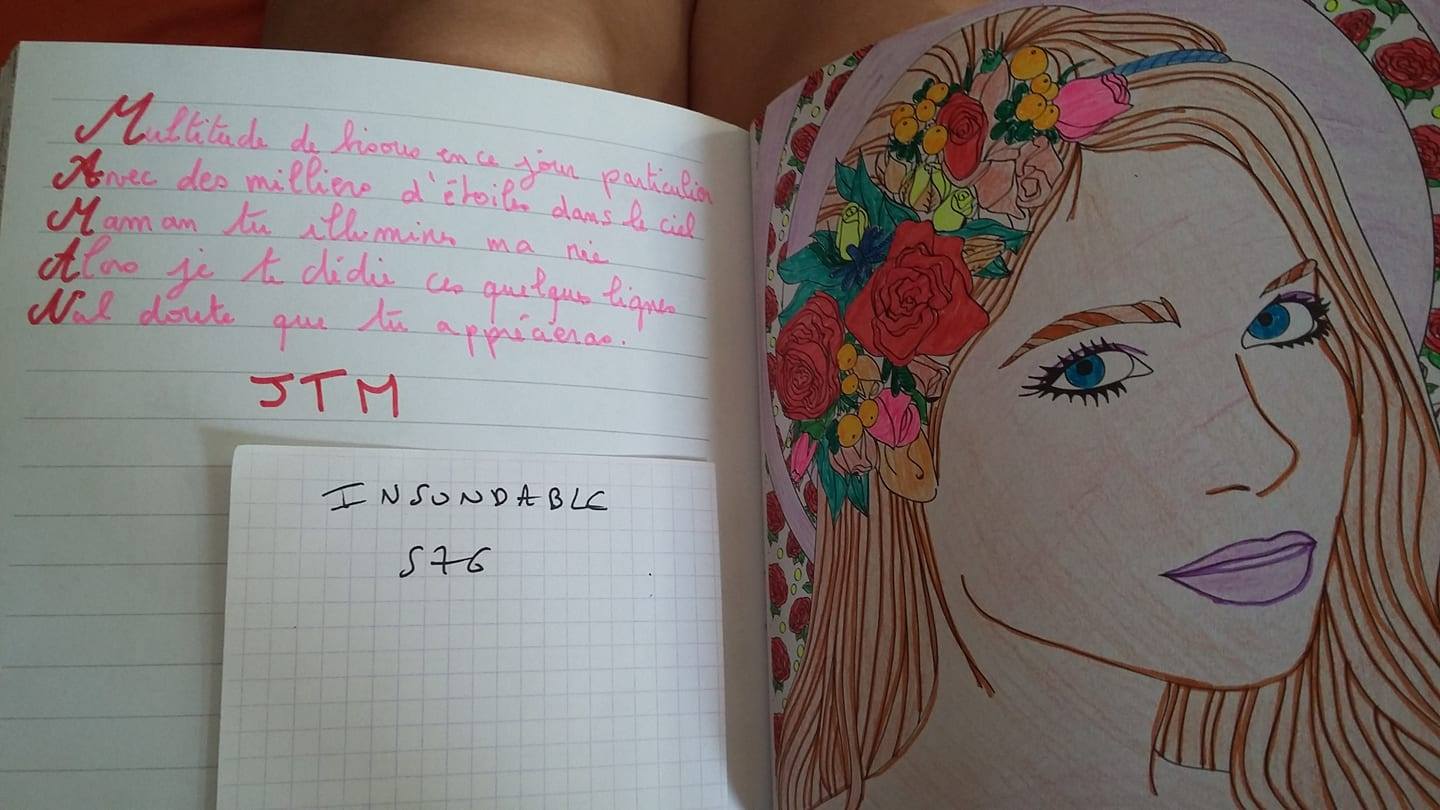 Multitude de bisous en ce jour particulier
Avec des milliers d'étoiles dans le ciel
Maman tu illumines ma vie
Alors je te dédie ces quelques lignes
Nul doute que tu apprécieras.
JTM
INSONDABLE
576